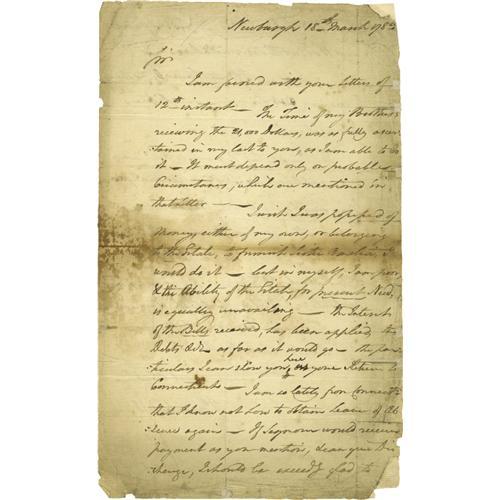 Newburgh 18th March 178
Sir
I am favored with your Letters of
12th instant — The Time of my Brother's
receiving the 21,000 Dollars, was as fully ascer
tained in my last to you, as I am able to do
it — It must depend only on probable
Circumstances, which are mentioned in
that letter — I wish I was possessed of
Money, either of my own, or belonging
to the Estate, to furnish I
would do it — but in myself, I am poor
& the Ability of the Estate, for present Need,
is equally unavailing — the Interest
of the Bills received, has been applied to
Debts &c as far as it would go — the par
ticulars I can show you here on your Return to
Connecticut — I am so lately from Connecti
that I know not how to obtain Leave of Ab
sence again — If Seymour would receive
payment as you mention, & can give Dis
charge, I should be exceedg glad to